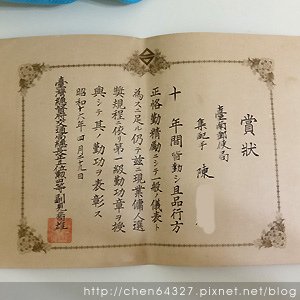 賞狀
臺南郵便局
集配手 陳
十年間皆勤シ且品行方
正恪勤精勵ニシテ一般ノ儀表ト
為スニ足ル仍テ茲ニ現業傭人選
獎規程ニ依リ第一級勤功章ヲ授
與シテ其ノ勤功ヲ表彰ス
昭和十六年四月二十九日
臺灣總督府交通局總長
http://chen64327.pixnet.net/blog